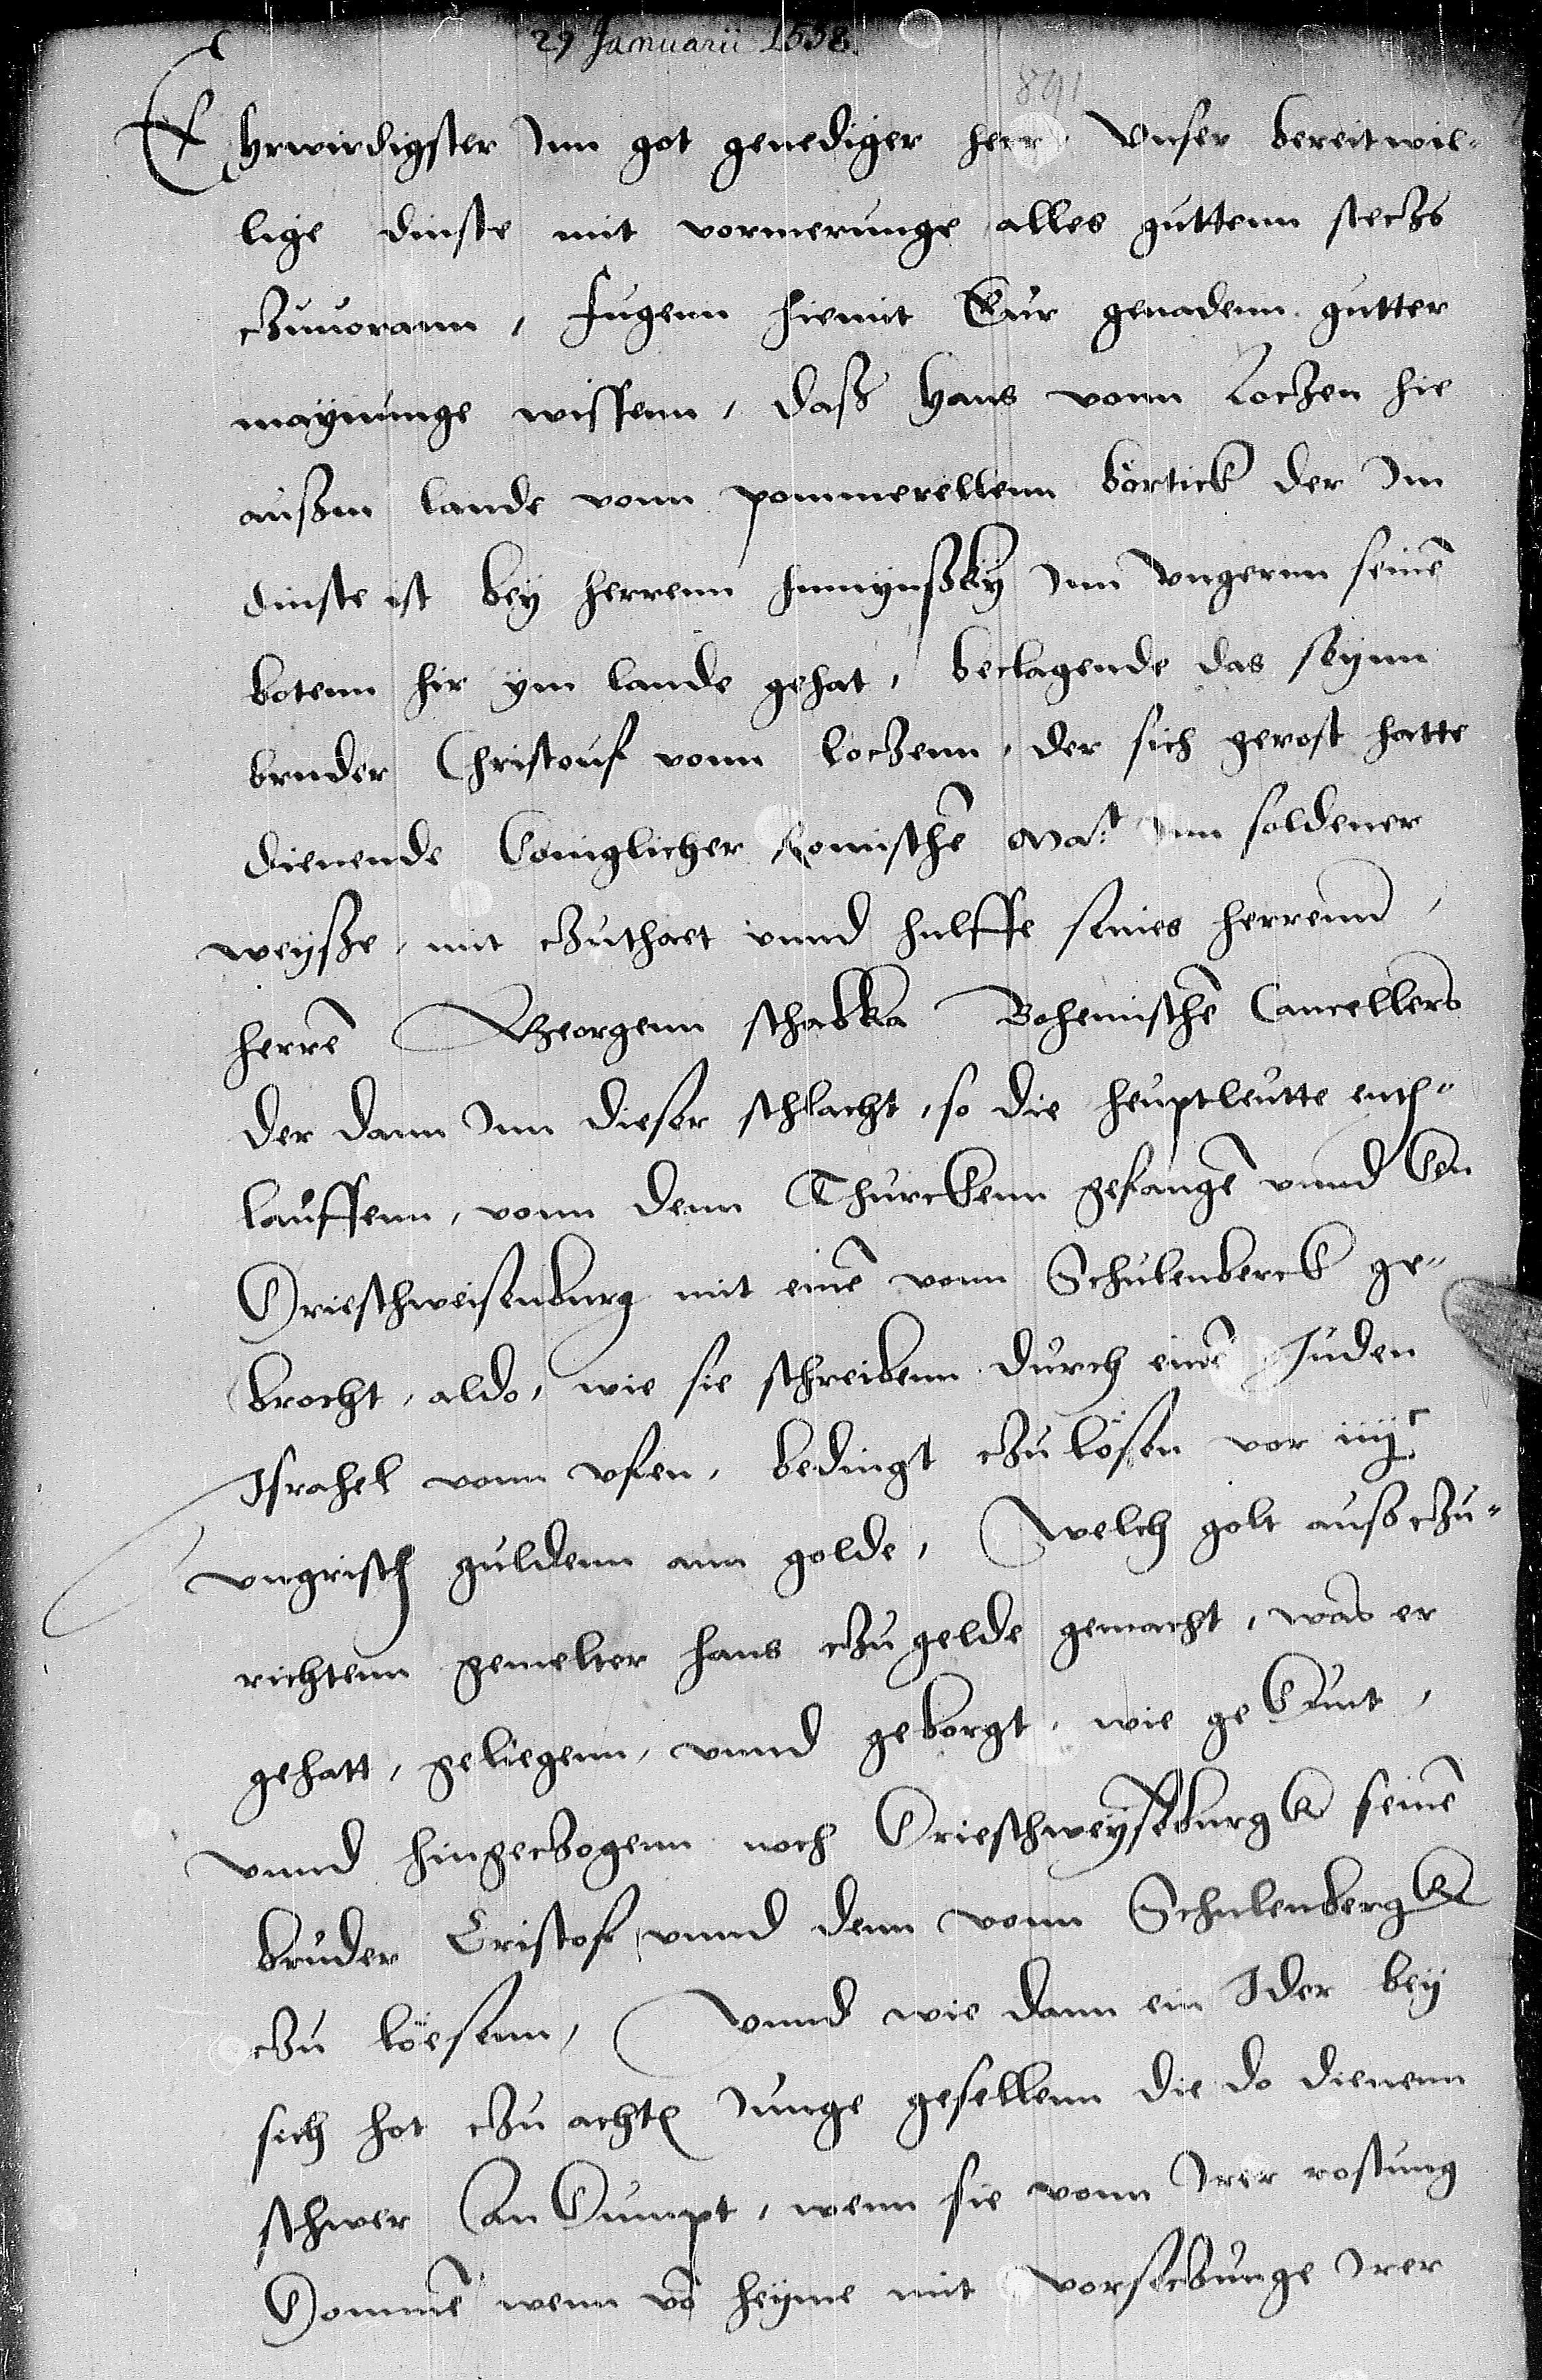 29 Januarii 1538.
891
Ehrwirdigster Inn got genediger herr, Vnser bereitwil-
lige dinste mit vormerunge alles guttenn steczs
czuuorann, Fugenn hiemit Eur genadenn gutter
maynunge wissenn, daß Hans vonn Loczen hie
außm lande vonn pommerellenn börtick der Im
dinste ist bey herrenn hunnynßky Inn Vngernn seinē
botenn hir ym lande gehat, beclagende das seynn
bruder Christouf vonn Loczenn, der sich gerost hatte
dienende Coniglicher Romischē Mat Inn soldener
weysze, mit czuthaet vnnd hulffe seines herrenn,
herrē Georgenn schabka Bohemischē Cancellers
der dann Inn dieser schlacht, so die heuptleutte enth-
lauffenn, vonn denn Thurckenn gefangē vnnd ken
Krieschweisenburg mit einē vonn Schulenberck ge-
brocht, aldo, wie sie schreibenn durch einē Juden
Israhel vonn ofen, bedingt czu lösen vor iiijc
vngrisch guldenn ann golde, Welch golt auß czu-
richtenn gemelter hans czu gelde gemacht, was er
gehatt, geliegenn, vnnd geborgt, wie ge kunt,
vnnd hingeczogenn noch Krieschweyssburgk seinē
bruder Cristof vnnd denn vonn Schulenbergk
czu löesenn, Vnnd wie dann ein Ider bey
sich hot czu achtē Junge gesellenn die do dienenn
schwer an kumpt, wenn sie vonn Irer rostung
kommē wenn vō heyme mit vorseczunge Irer